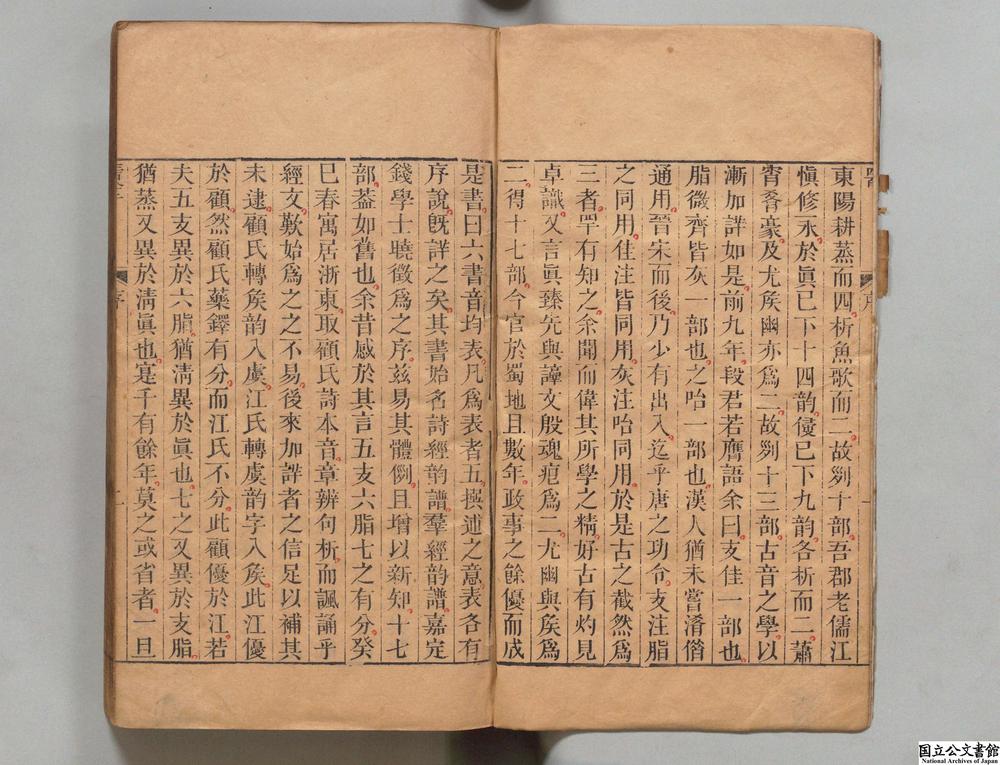 東陽耕蒸而四析魚歌而二故列十部吾郡老儒江
愼修永於眞已下十四韵侵已下九韵各析而二蕭
宵肴豪及尤矦幽亦爲二故列十三部古音之學以
漸加詳如是前九年段君若膺語余曰支佳一部也
脂微齊皆灰一部也之咍一部也漢人猶未嘗淆借
通用晉宋而後乃少有出入迄乎唐之功令支注脂
之同用佳注皆同用灰注咍同用於是古之截然爲
三者罕有知之余聞而偉其所學之精好古有灼見
卓識又言眞臻先與諄文殷魂痕爲二尤幽與矦爲
二得十七部今官於蜀地且數年政事之餘優而成
是書曰六書音均表凡爲表者五撰述之意表各有
序說旣詳之矣其書始名詩經韵譜羣經韵譜嘉定
錢學士曉徵爲之序兹易其體例且增以新知十七
部葢如舊也余昔感於其言五支六脂七之有分癸
巳春寓居浙東取顧氏詩本音章辨句析而諷誦乎
經文歎始爲之之不易後來加詳者之信足以補其
未逮顧氏轉矦韵入虞江氏轉虞韵字入矦此江優
於顧然顧氏藥鐸有分而江氏不分此顧優於江若
夫五支異於六脂猶淸異於眞也七之又異於支脂
猶蒸又異於淸眞也寔千有餘年莫之或省者一旦
序
国立公文書館
National Archives of Japan